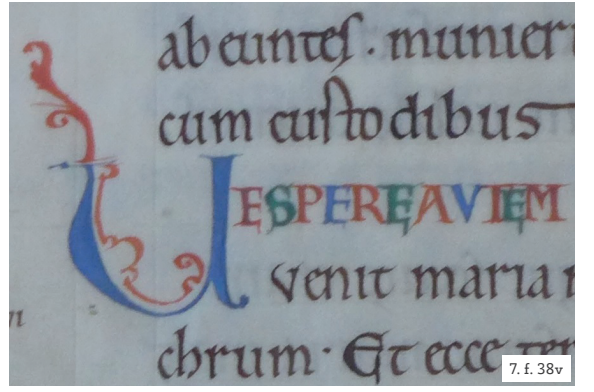 abeuntes. munier
cum custodibus
VESPEREAVTEM
venit maria
chrum. Et ecce ter
7. f. 38v